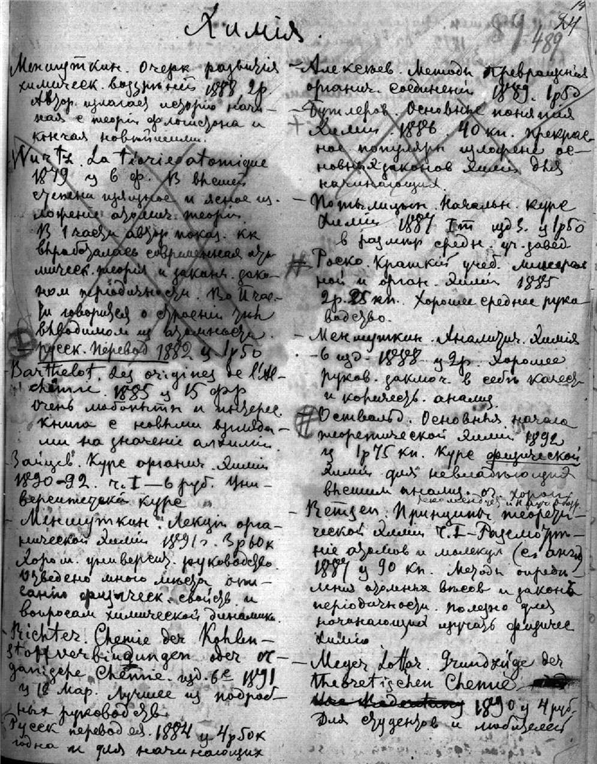 Химія.
489
Меншуткин. Очерк развитія
химическ. воззрѣній 1888 2р.
Автор излагает исторію начи-
ная с теоріи флогистона и
кончая новѣйшими.
Wurtz. La théorie atomique
1879 ц 6 ф. В высшей
степени изящное и ясное из-
ложение атомич. теоріи.
В 1 части автор показ. как
выработалась современная ато-
мическ. теория и закан. зако-
ном періодичности. Во II час-
ти говорится о строении
русск. перевод 1882 ц 1р50
Barthelot. Les origines de l'Al-
chemie. 1885 ц 15 фр
очень любопытн и интерес.
книга с новыми взгляда-
ми на значение алхиміи
Зайцев. Курс органич. химіи
1890-92. ч. I — 6 руб. Уни-
верситетскій курс
Меншуткин. Лекции орга-
нической химіи 1891 г. 3р 60к
Хорош. университ. руководство
отведено много мѣста опи-
санію физическ. свойств и
вопросам химической динамики.
Richter. Chemie der Kohlen-
stoffverbindungen oder or-
ganische Chemie. изд. 6е 1891
ц 12 мар. Лучшее из подроб-
ных руководств
Русск перевод 1884 ц 4р50к
годна и для начинающих
Алексеев. Методы превращенія
органич. соединеній 1889. 1р50
Бутлеров Основные понятія
химіи 1886 40 кп. прекрас-
ное популярн изложение ос-
новных законов химіи для
начинающих.
Потылицын. Начальн. курс
химіи 1887 ц 1р50
в размѣр средн. уч. завед
Роско. Краткий учеб. минераль
ной и орган. химіи 1885
2р. 25 кп. Хорошее среднее руко
водство.
Меншуткин. Аналитич. химія
6 изд. 1888 ц 2р. Хорошее
руков. заключ. в себѣ качеств
и количеств. анализ
Оствальд. Основныя начала
теоретической химіи 1892
ц 1р 75 кп. Курс физической
химіи для невладѣющих
высшим анализ.
Ремзен. Принципы теорети-
ческой химіи
атомов и молекул (с англ
1887 ц 90 кп. Методы опредѣ-
ления атомных вѣсов и законъ
періодичности. полезно для
начинающий изучать физичес
химію
Meyer Lothar. Grundzüge der
theoretischen Chemie
1890 ц 4 руб.
Для студентов и любителей